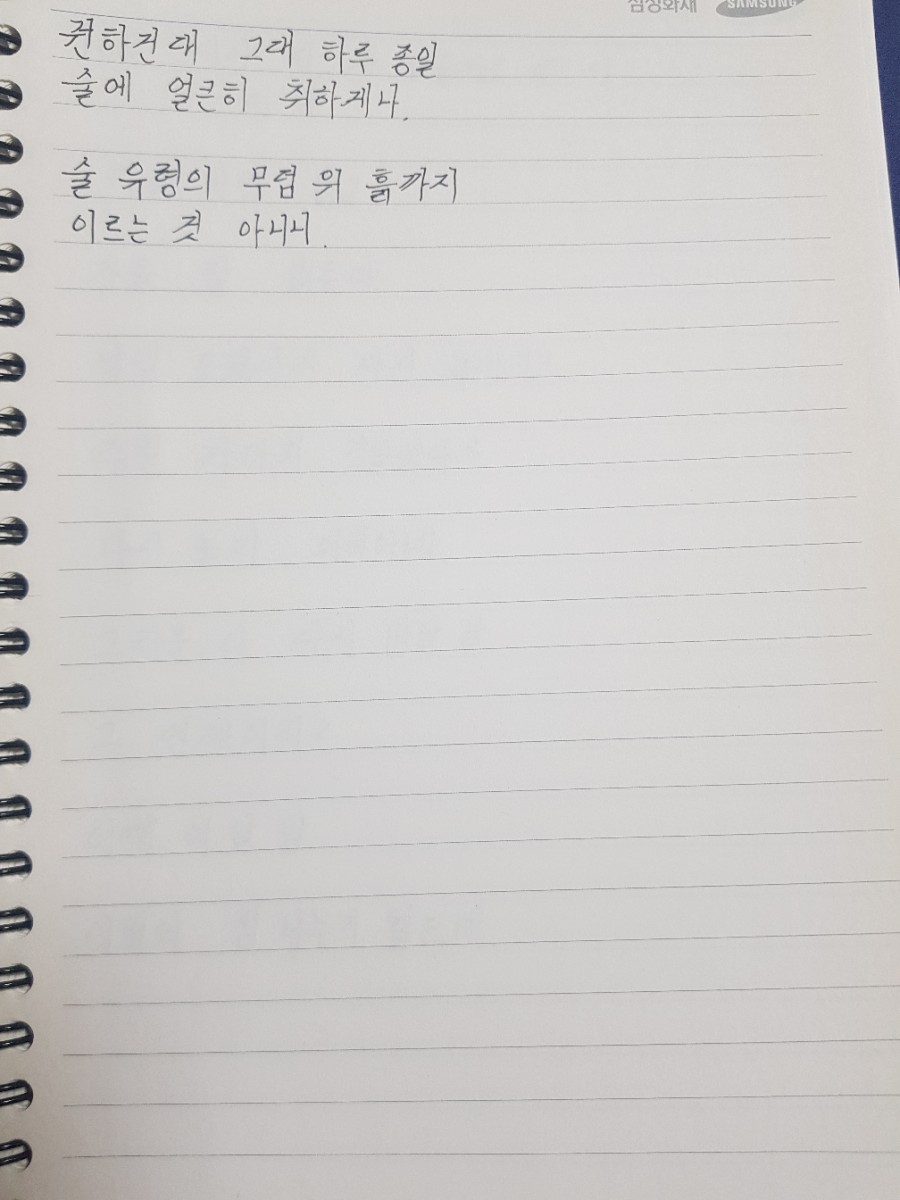 삼성화재 SAMSUNG
권하건대 그대 하루 종일
술에 얼큰히 취하게나.
술 유령의 무덤 위 흙까지
이르는 것 아니니.